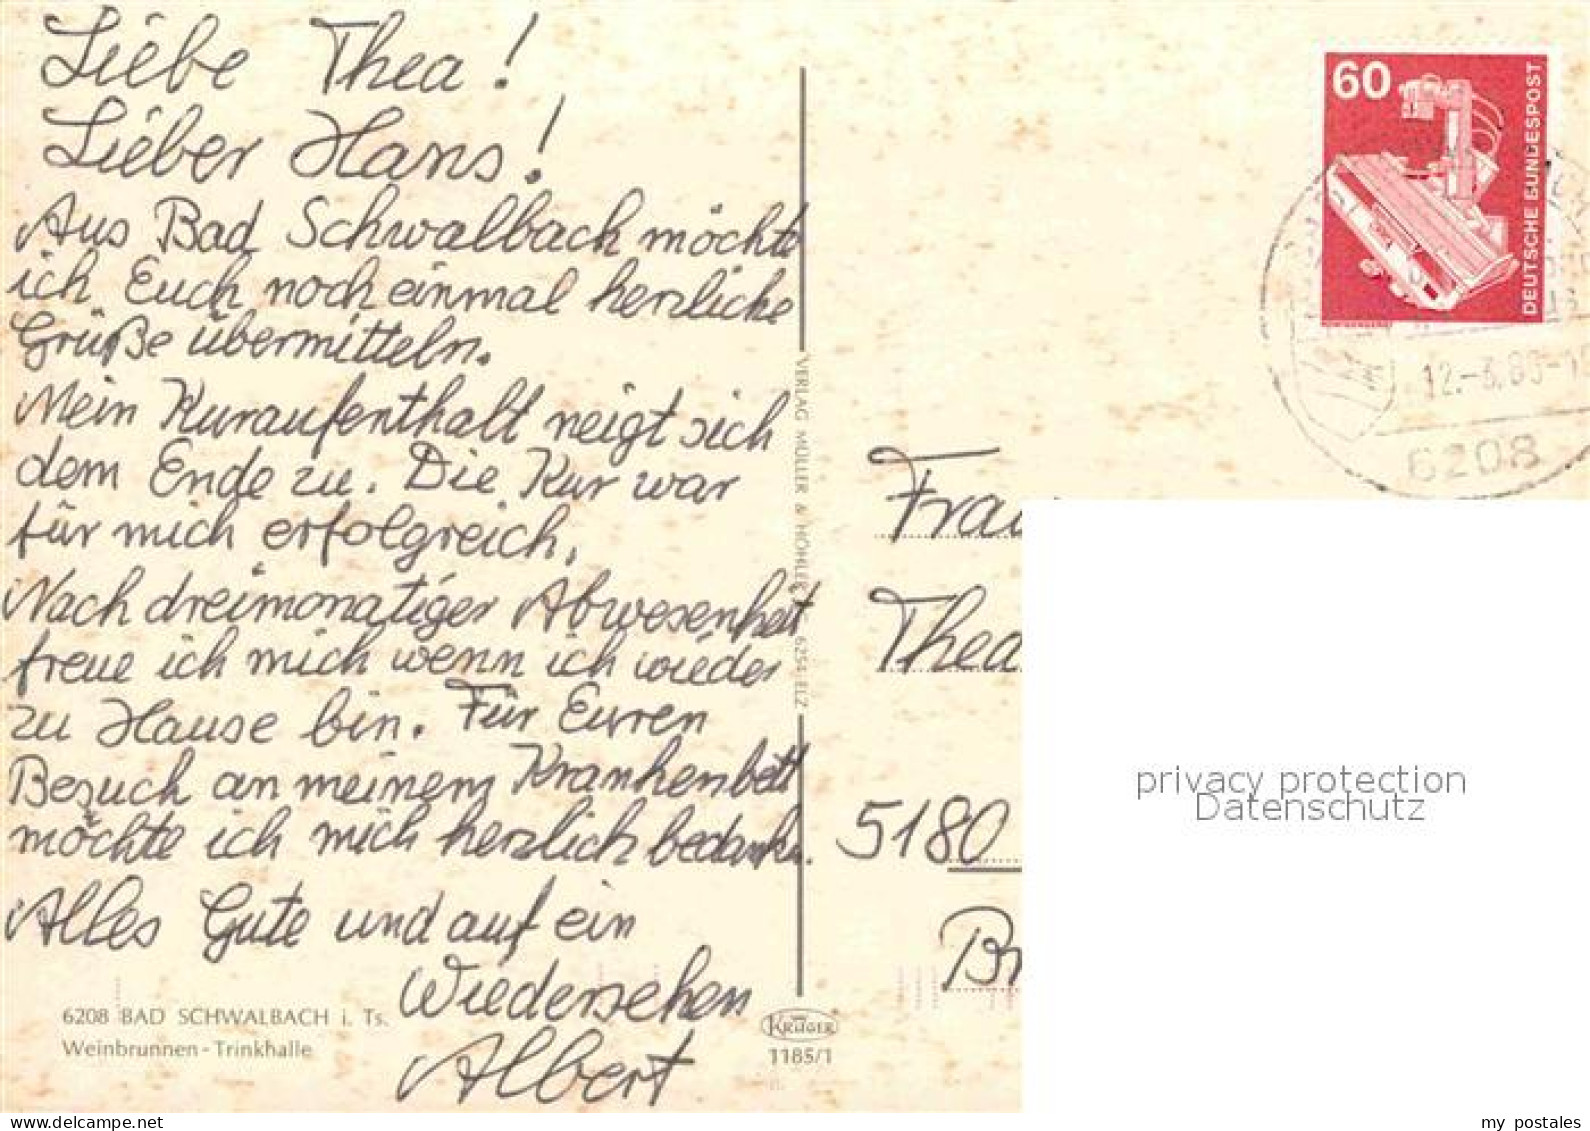 Liebe Thea!
Lieber Hans!
Aus Bad Schwalbach möchte
ich Euch noch einmal herzliche
Grüße übermitteln.
Mein Kuraufenthalt neigt sich
dem Ende zu. Die Kur war
für mich erfolgreich.
Nach dreimonatiger Abwesenheit
freue ich mich wenn ich wieder
zu Hause bin. Für Euren
Besuch an meinem Krankenbett
möchte ich mich herzlich bedanken.
Alles Gute und auf ein
Wiedersehen
Albert
6208 BAD SCHWALBACH i. Ts.
Weinbrunnen - Trinkhalle
VERLAG MÜLLER & HÖHLER 6251 ELZ
KRÜGER
1185/1
60
DEUTSCHE BUNDESPOST
12.-3.80-1
6208
Frau
Thea
5180
privacy protection
Datenschutz
my postales